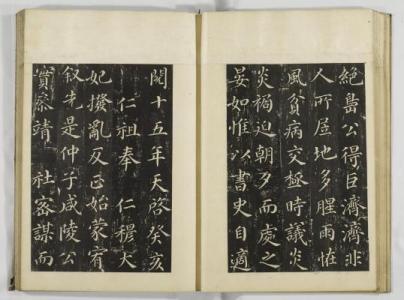 絶島公得巨濟濟非
人所居地多腥雨恠
風貧病交極時議炎
炎禍迫朝夕而處之
晏如惟以書史自適
閱十五年天啓癸亥
仁祖奉 仁穆大
妃撥亂反正始蒙宥
叙先是仲子咸陵公
實奈靖 社密謀而